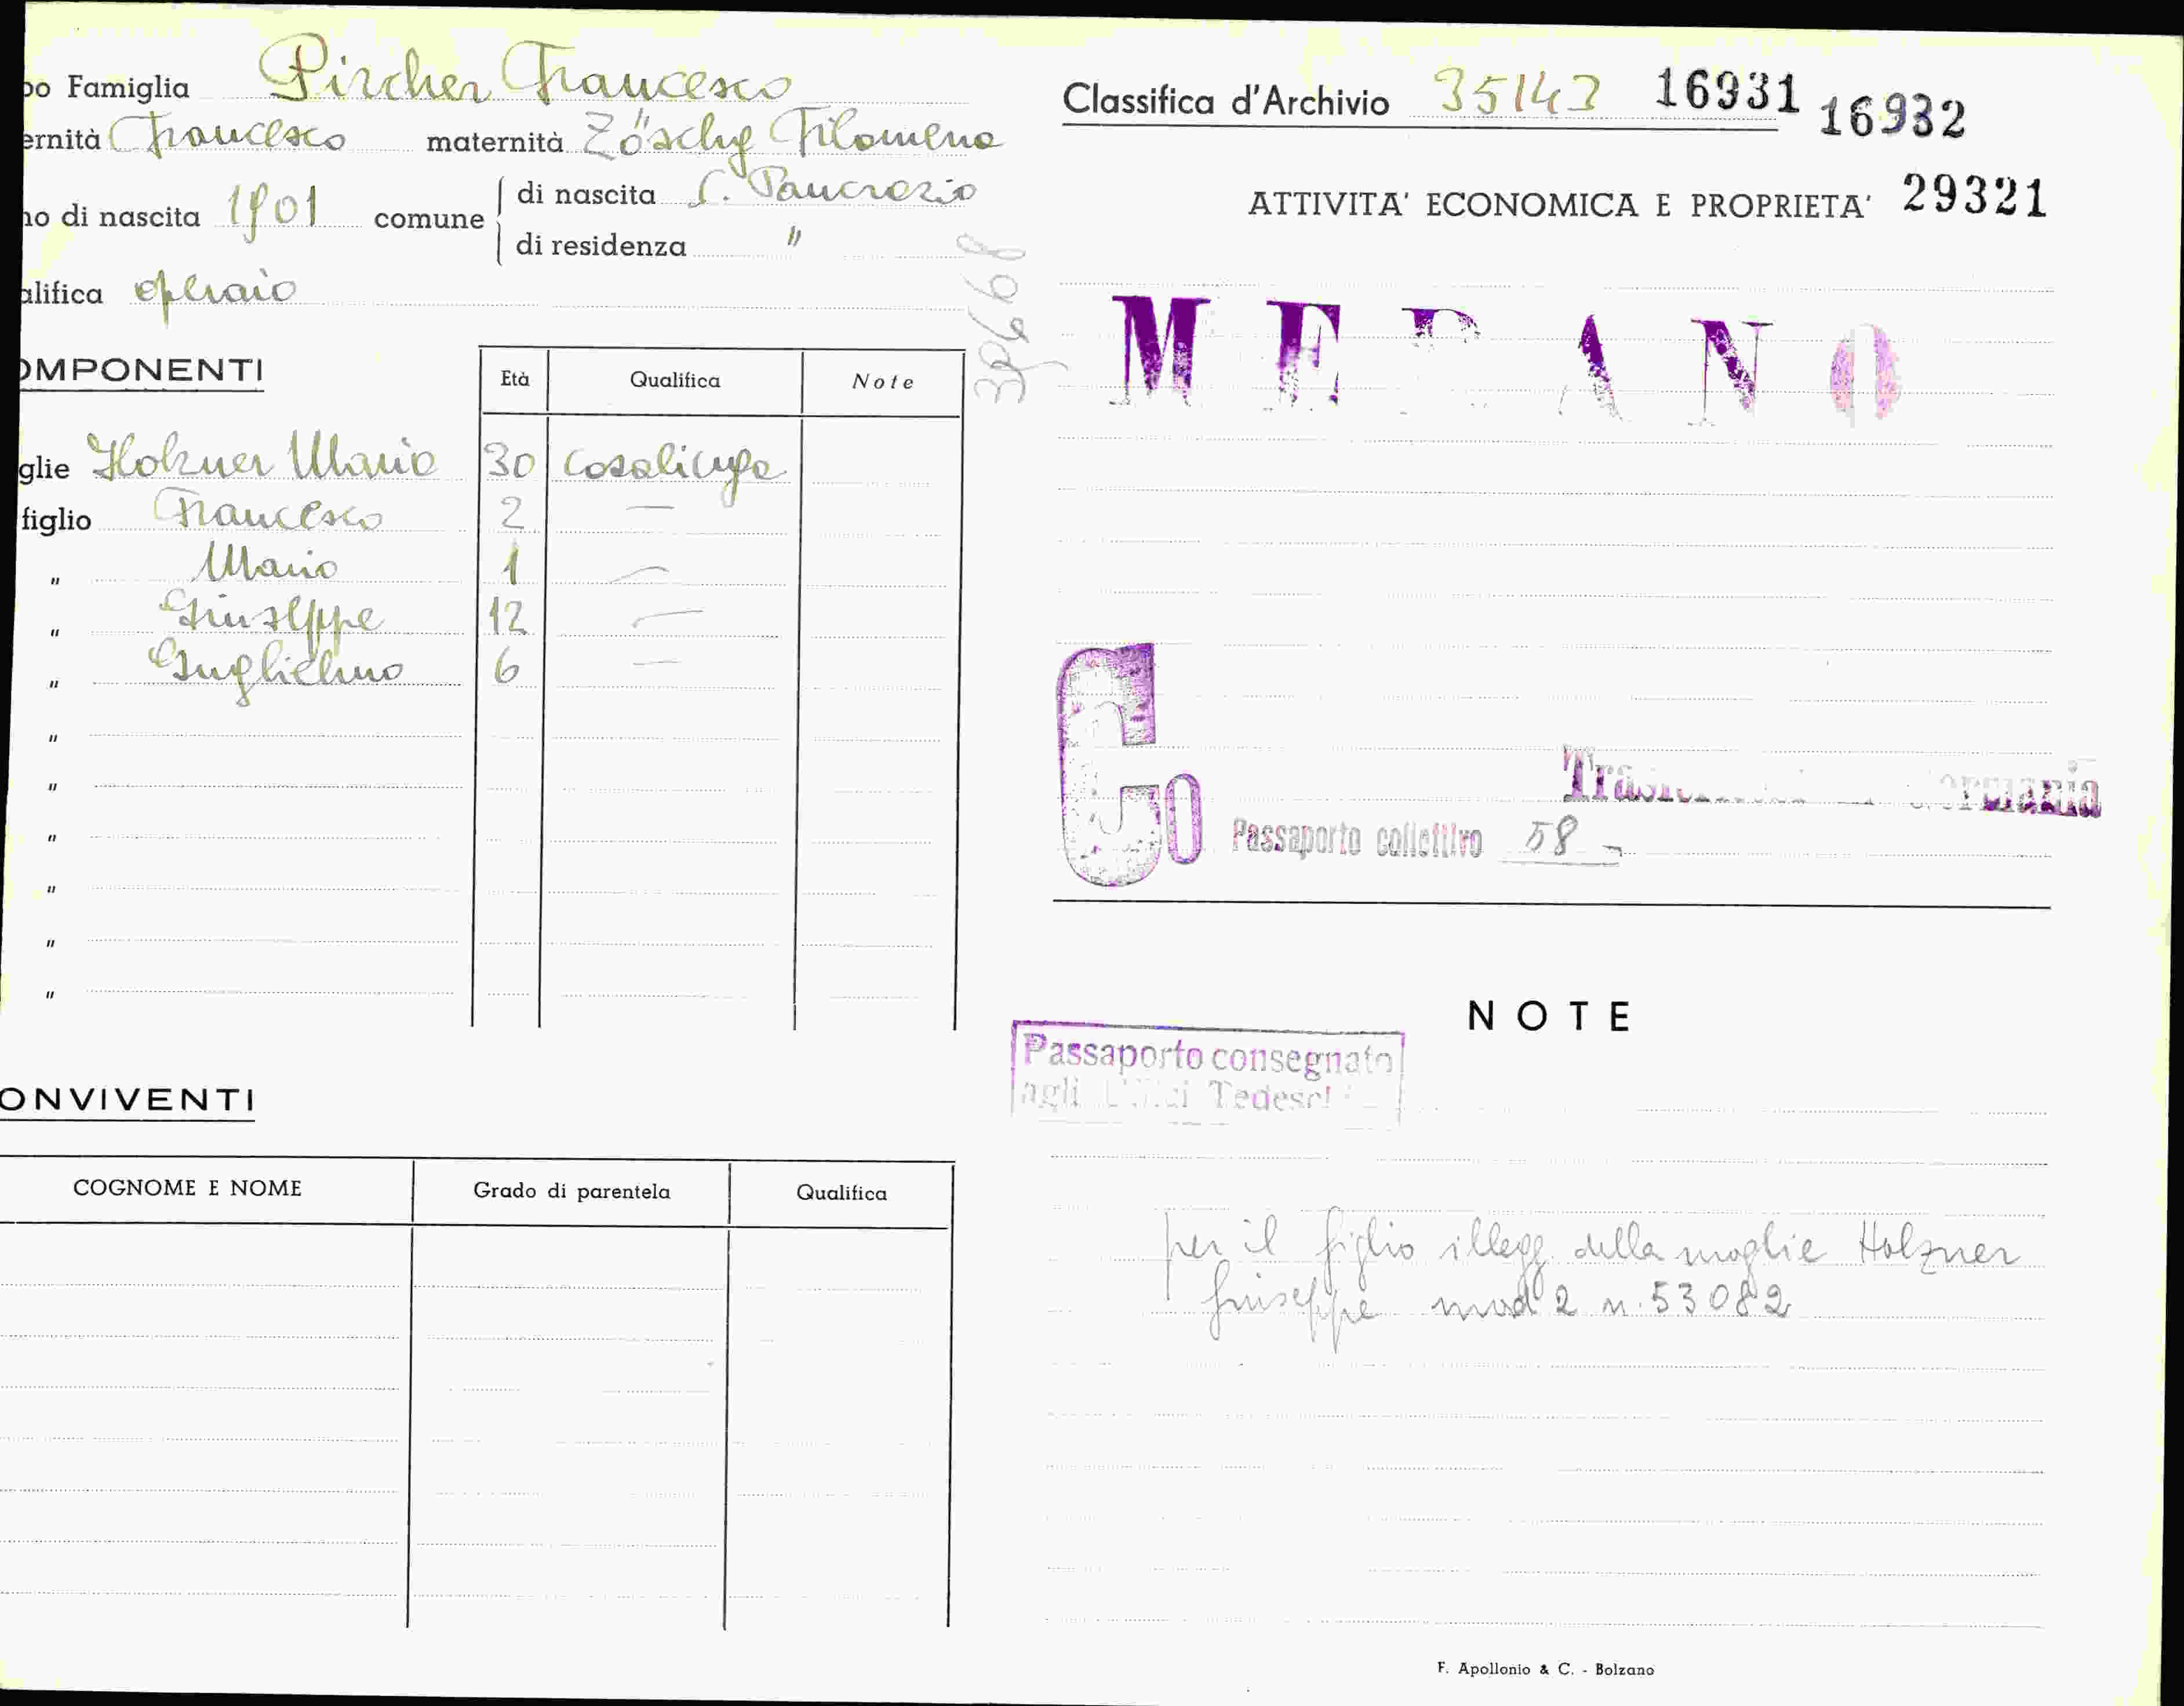 po Famiglia Pircher Francesco
ernità Francesco maternità Zöschg Filomena
no di nascita 1901 comune di nascita S. Pancrazio
di residenza "
alifica operaio
39668
OMPONENTI
Età Qualifica Note
glie Holzner Maria 30 casalinga
figlio Francesco 2 —
" Maria 1 —
" Giuseppe 12 —
" Guglielmo 6 —
"
"
"
"
"
"
ONVIVENTI
COGNOME E NOME Grado di parentela Qualifica
Classifica d'Archivio 35143 16931 16932
ATTIVITA' ECONOMICA E PROPRIETA' 29321
MERANO
Co Passaporto collettivo 58
Germania
NOTE
Passaporto consegnato
agli Uffici Tedeschi
per il figlio illegg. della moglie Holzner
Giuseppe mod 2 n. 53082
F. Apollonio & C. - Bolzano